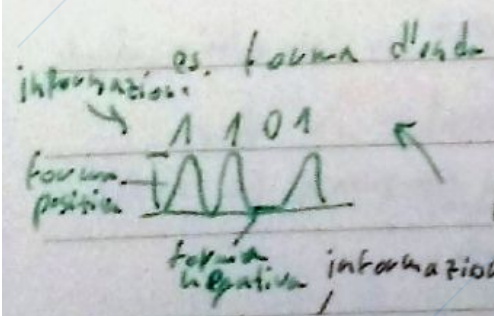 es. forma d'onda
informazione
1 1 0 1
forma
positiva
forma
negativa
informazion